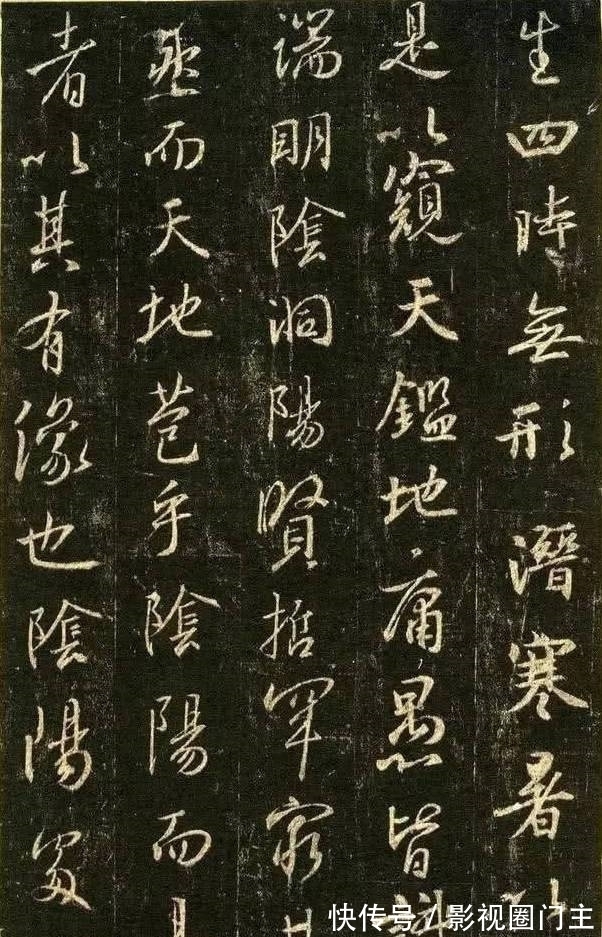 生四時無形潛寒暑以
是以窺天鑑地庸愚皆識
端明陰洞陽賢哲罕窮其
然而天地苞乎陰陽而易
者以其有像也陰陽處
快传号/影视圈门主